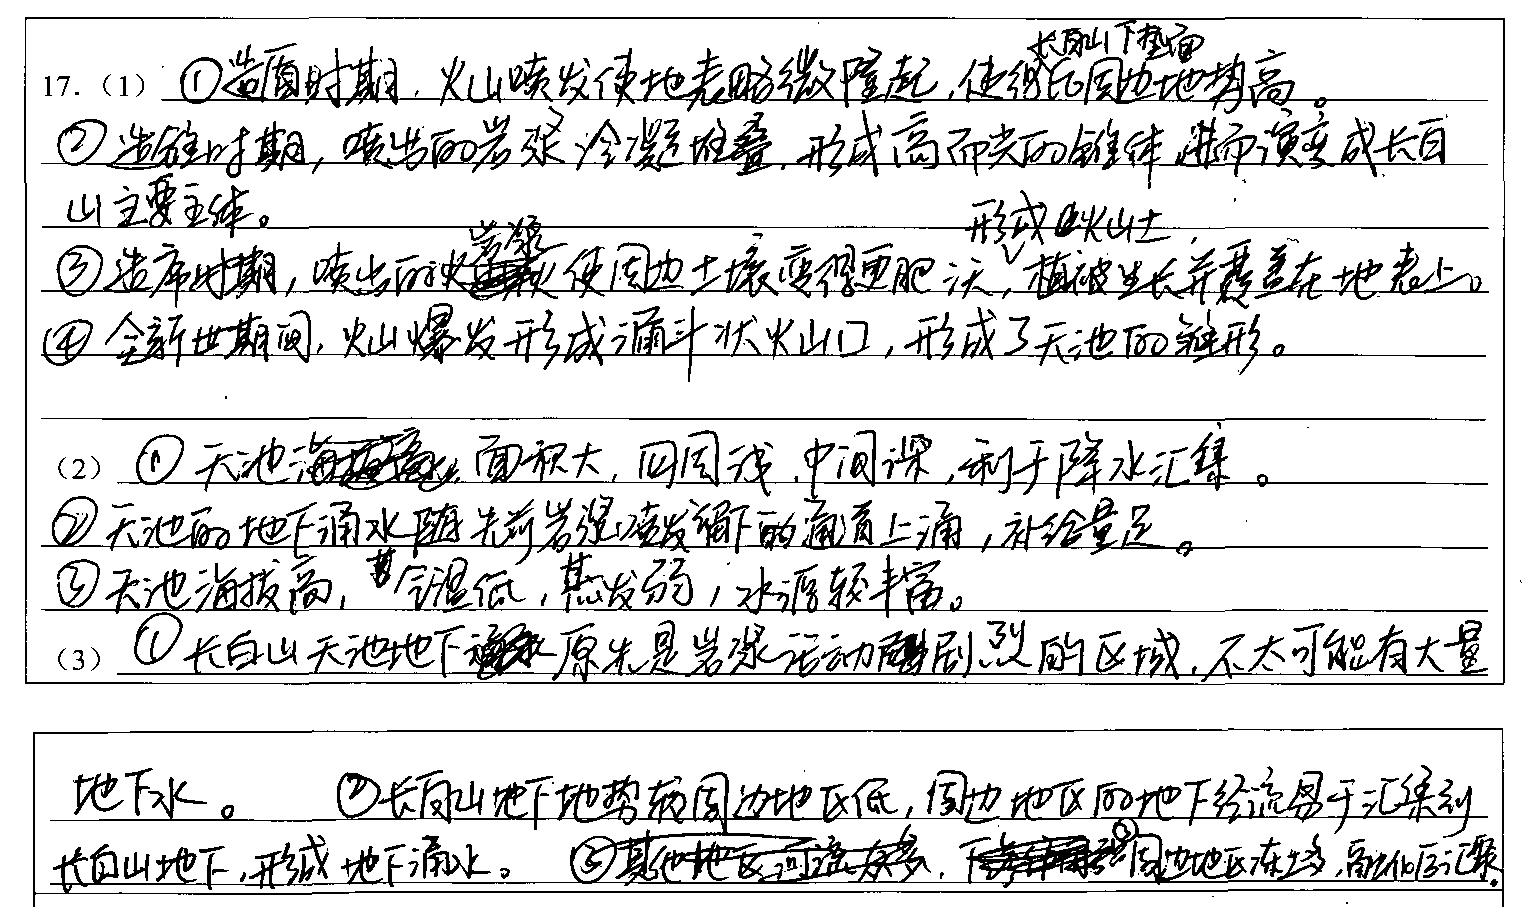 长白山下垫面
17.（1）①造盾时期，火山喷发使地表略微隆起，使得比周边地势高。
②造锥时期，喷出的岩浆冷凝堆叠，形成高而尖的锥体，进而演变成长白
山主要主体。
岩浆 形成火山土，
③造席时期，喷出的 使周边土壤变得更肥沃，植被生长并覆盖在地表上。
④全新世期间，火山爆发形成漏斗状火山口，形成了天池的雏形。
（2）①天池 面积大，四周浅，中间深，利于降水汇集。
②天池的地下涌水随先前岩浆喷发留下的通道上涌，补给量足。
③天池海拔高，气温低，蒸发弱，水源较丰富。
（3）①长白山天池地下 原先是岩浆活动剧烈的区域，不太可能有大量
地下水。 ②长白山地下地势较周边地区低，周边地区的地下径流易于汇集到
长白山地下，形成地下涌水。 ③周边地区冻土多，融化后汇聚。